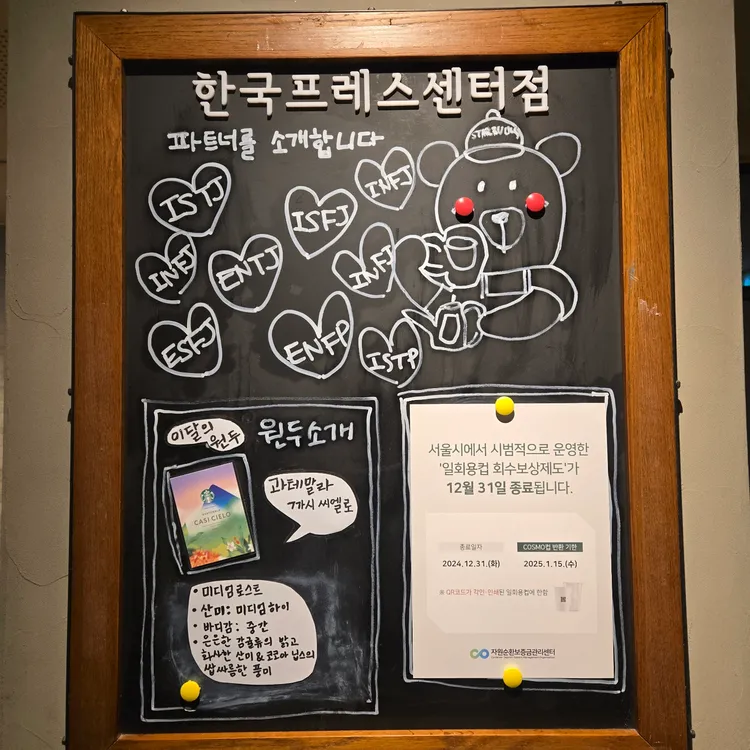 한국프레스센터점
파트너를 소개합니다
STARBUCKS
ISTJ
ISFJ
INFJ
INFJ
ENTJ
INFJ
ESFJ
ENFP
ISTP
이달의
원두
원두소개
CASI CIELO
과테말라
까시 씨엘로
• 미디엄로스트
• 산미: 미디엄하이
• 바디감: 중간
• 은은한 감귤류의 밝고
화사한 산미 & 코코아 닙스의
쌉싸름한 풍미
서울시에서 시범적으로 운영한
'일회용컵 회수보상제도'가
12월 31일 종료됩니다.
종료일자
COSMO컵 반환 기한
2024.12.31.(화)
2025.1.15.(수)
※ QR코드가 각인·인쇄된 일회용컵에 한함
자원순환보증금관리센터